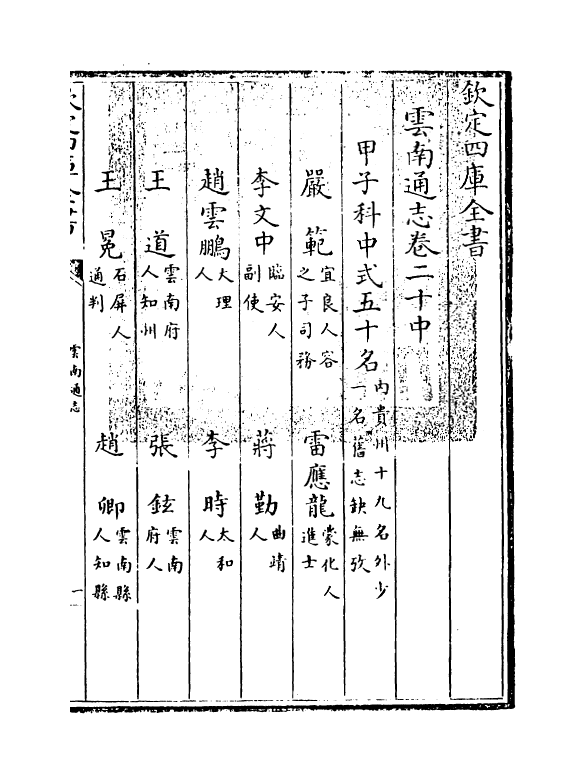 欽定四庫全書
雲南通志卷二十中
甲子科中式五十名內貴州十九名外少一名舊志缺無攷
嚴範宜良人容之子司務 雷應龍蒙化人進士
李文中臨安人副使 蔣勤曲靖人
趙雲鵬大理人 李時太和人
王道雲南府人知州 張鉉雲南府人
王冕石屏人通判 趙卿雲南縣人知縣
欽定四庫全書 雲南通志 一